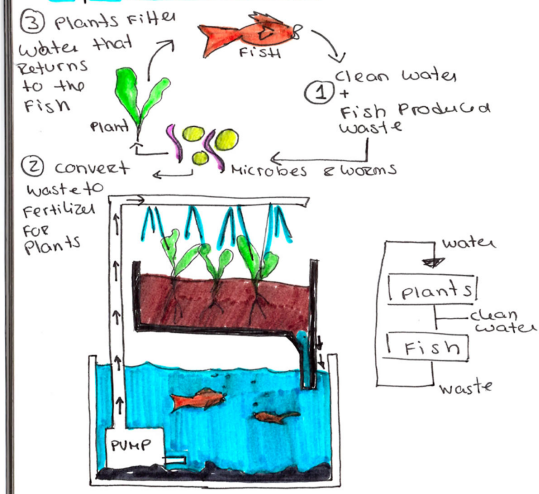 ③ Plants Filter
Water that
Returns
to the
Fish
Fish
Clean water
①
+
Fish Produced
Waste
Plant
Microbes & worms
② convert
waste to
Fertilizer
For
Plants
water
Plants
clean
water
Fish
waste
PUMP